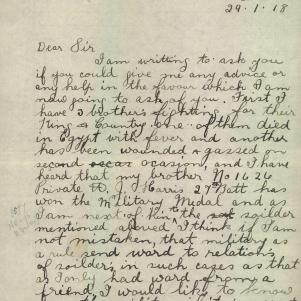 29.1.18
Dear Sir
I am writting to ask you
if you could give me any advice or
any help in the favour which I am
now going to ask of you. First I
have 3 brothers fighting for their
King & Country one of them died
in Egypt with fever and another
has been wounded & gassed on
second ocasiony and I have
heard that my brother No 1626
Private H. J. Harris 27 Batt has
won the Military Medal and as
I am next of kin to the soilder
mentioned aboved I think if I am
not mistaken, that military as
a rule send ward to relations
of soilders in such cases as that
as I only had word from a
friend, I would like to know